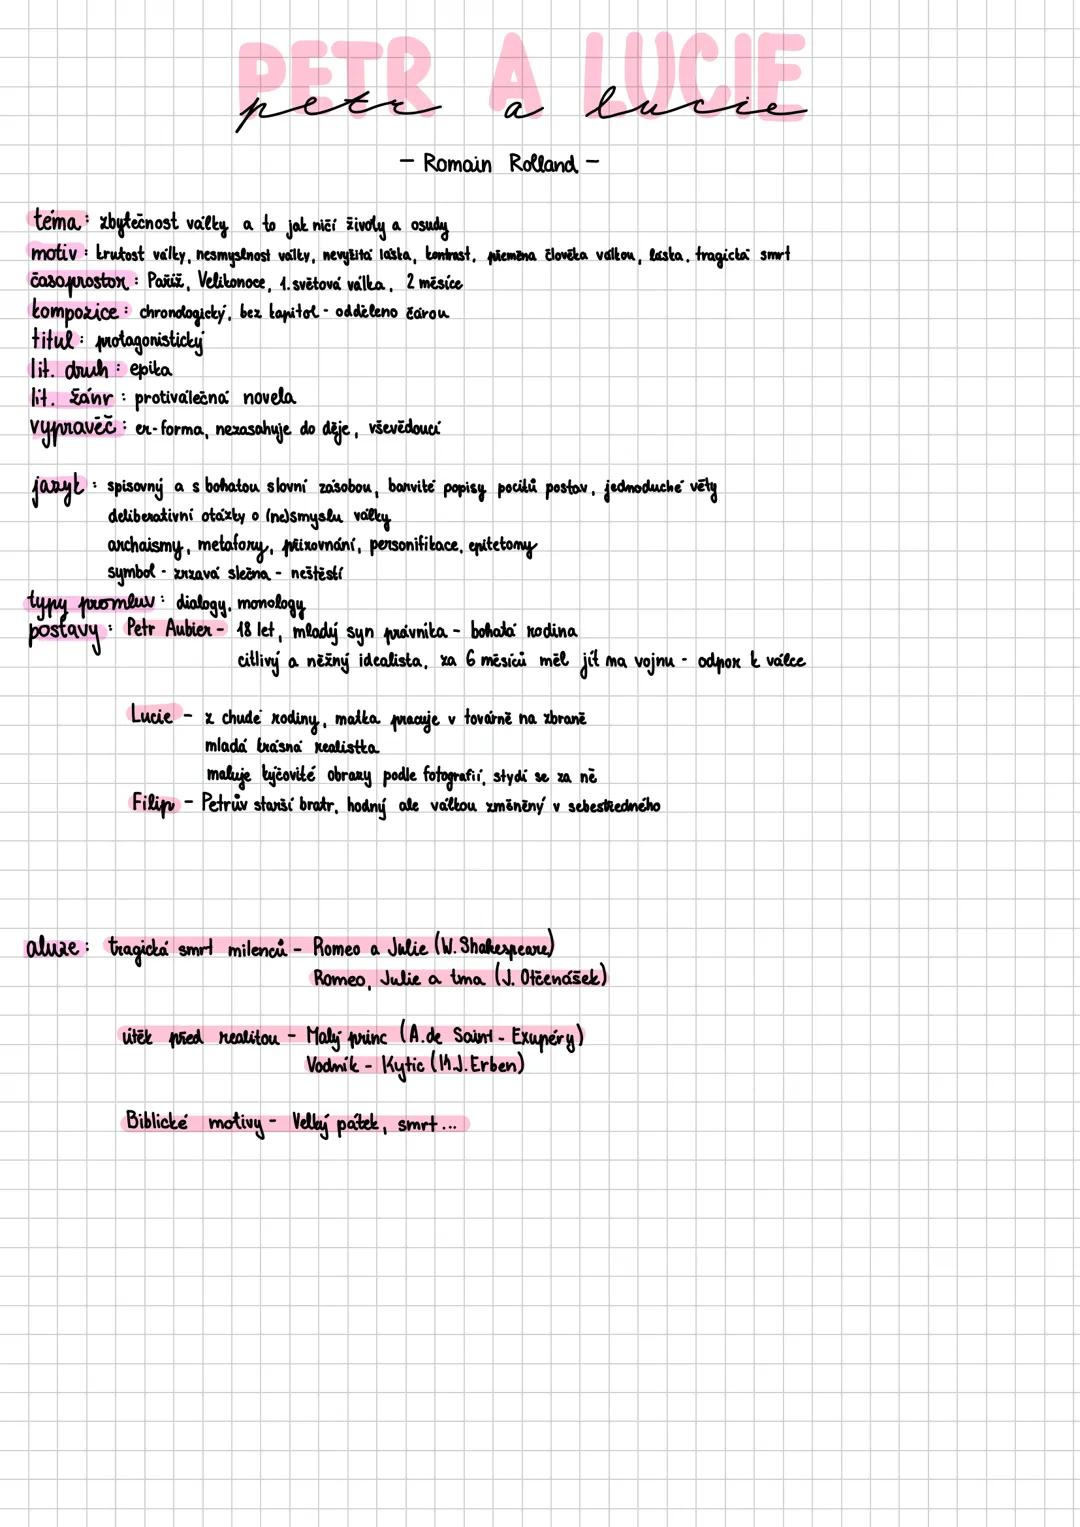 PETR A LUCIE
petr a lucie
- Romain Rolland -
téma: zbytečnost války a to jak ničí životy a osudy
motiv: krutost války, nesmyslnost války, nevyžitá láska, kontrast, přeměna člověka válkou, láska, tragická smrt
časoprostor: Paříž, Velikonoce, 1. světová válka, 2 měsíce
kompozice: chronologický, bez kapitol - odděleno čárou
titul: protagonistický
lit. druh: epika
lit. žánr: protiválečná novela
vypravěč: er-forma, nezasahuje do děje, vševědoucí
jazyk: spisovný a s bohatou slovní zásobou, barvité popisy pocitů postav, jednoduché věty
deliberativní otázky o (ne)smyslu války
archaismy, metafory, přirovnání, personifikace, epitetomy
symbol - zrzavá slečna - neštěstí
typy promluv: dialogy, monology
postavy: Petr Aubier - 18 let, mladý syn právníka - bohatá rodina
citlivý a něžný idealista, za 6 měsíců měl jít na vojnu - odpor k válce
Lucie - z chudé rodiny, matka pracuje v továrně na zbraně
mladá krásná realistka
maluje kýčovité obrazy podle fotografií, stydí se za ně
Filip - Petrův starší bratr, hodný ale válkou změněný v sebestředného
aluze: tragická smrt milenců - Romeo a Julie (W. Shakespeare)
Romeo, Julie a tma (J. Otčenášek)
útěk před realitou - Malý princ (A. de Saint - Exupéry)
Vodník - Kytic (K.J. Erben)
Biblické motivy - Velký pátek, smrt...